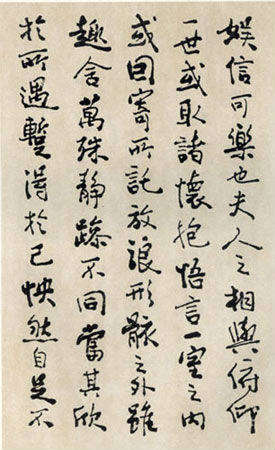 娱信可樂也夫人之相與俯仰
一世或取諸懷抱悟言一室之內
或因寄所託放浪形骸之外雖
趣舍萬殊靜躁不同當其欣
於所遇暫得於己怏然自足不